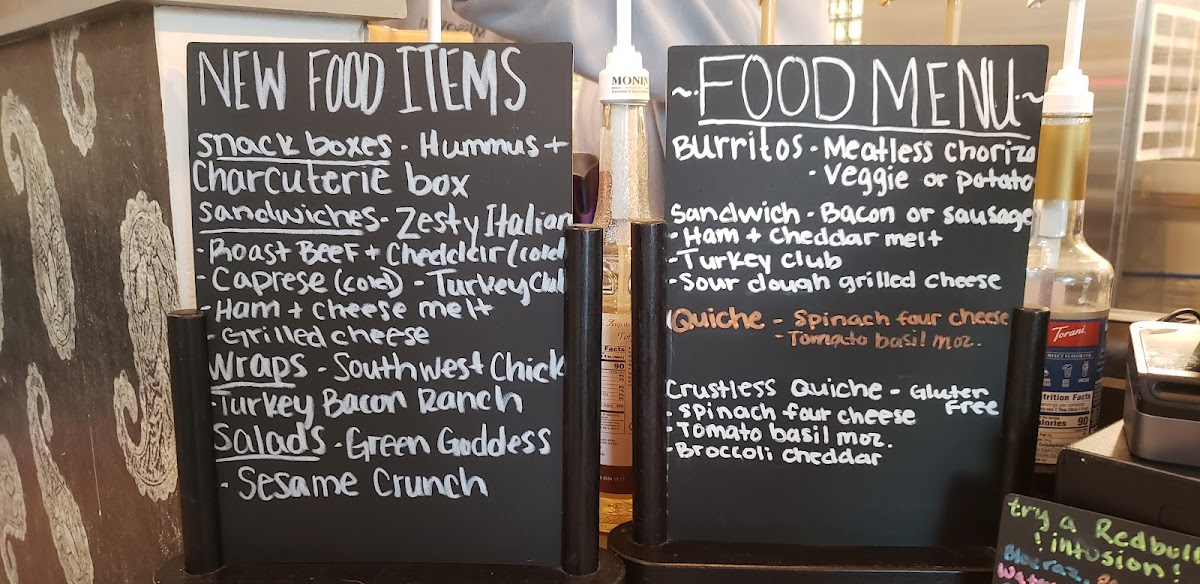 NEW FOOD ITEMS
snack boxes - Hummus +
Charcuterie box
sandwiches - Zesty Italian
- Roast Beef + Cheddar (cold
- Caprese (cold) - Turkey Club
- Ham + cheese melt
- Grilled cheese
Wraps - Southwest Chick
- Turkey Bacon Ranch
Salads - Green Goddess
- Sesame Crunch
~·FOOD MENU·~
Burritos - Meatless Chorizo
- Veggie or potato
Sandwich - Bacon or sausage
- Ham + Cheddar melt
- Turkey club
- Sour dough grilled cheese
Quiche - Spinach four cheese
- Tomato basil moz.
Crustless Quiche - Gluten
Free
- Spinach four cheese
- Tomato basil moz.
- Broccoli cheddar
MONIN
Facts
90
Torani
Nutrition Facts
Calories 90
try a Redbull
! infusion!